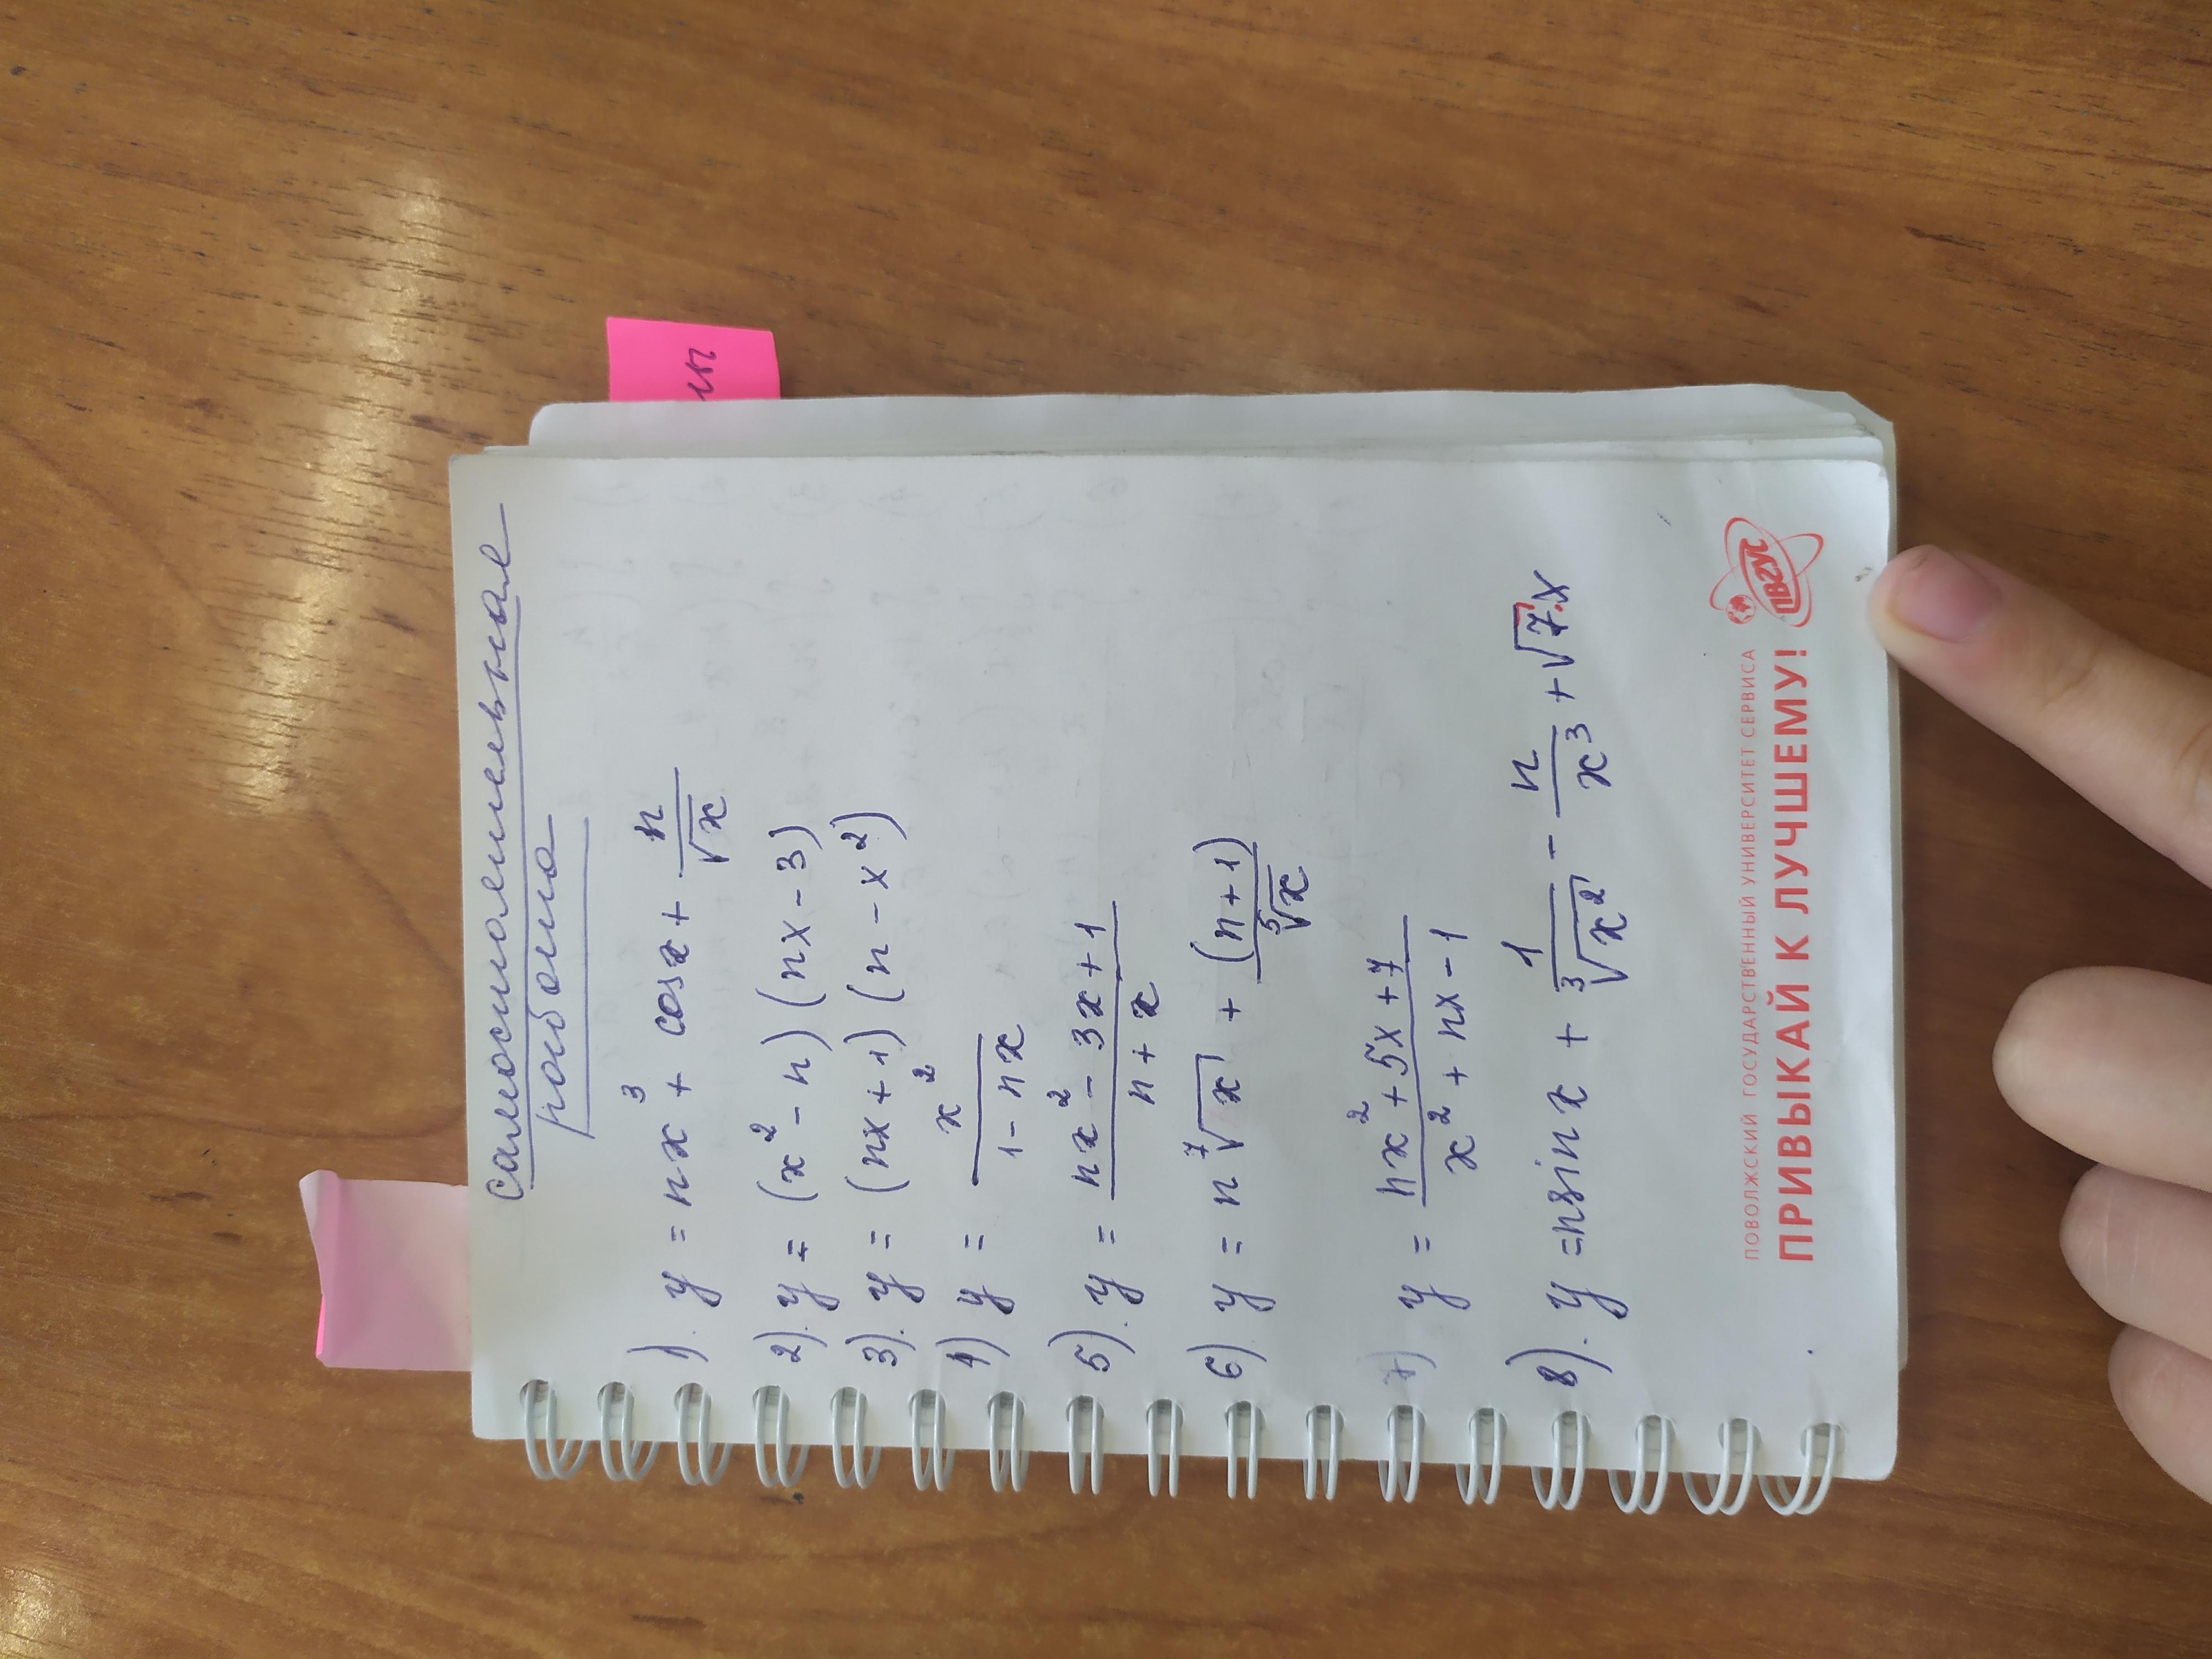 самостоятельная
работа
1). y = nx³ + cosx + n/√x
2). y = (x² - n)(nx - 3)
3). y = (nx + 1)(n - x²)
4) y = x²/(1 - nx)
5). y = (nx² - 3x + 1)/(n + x)
6). y = n ⁷√x + (n+1)/⁵√x
7) y = (nx² + 5x + 7)/(x² + nx - 1)
8). y = nsin x + 1/³√x² - n/x³ + √7·x
ПОВОЛЖСКИЙ ГОСУДАРСТВЕННЫЙ УНИВЕРСИТЕТ СЕРВИСА
ПРИВЫКАЙ К ЛУЧШЕМУ!
ПВГУС